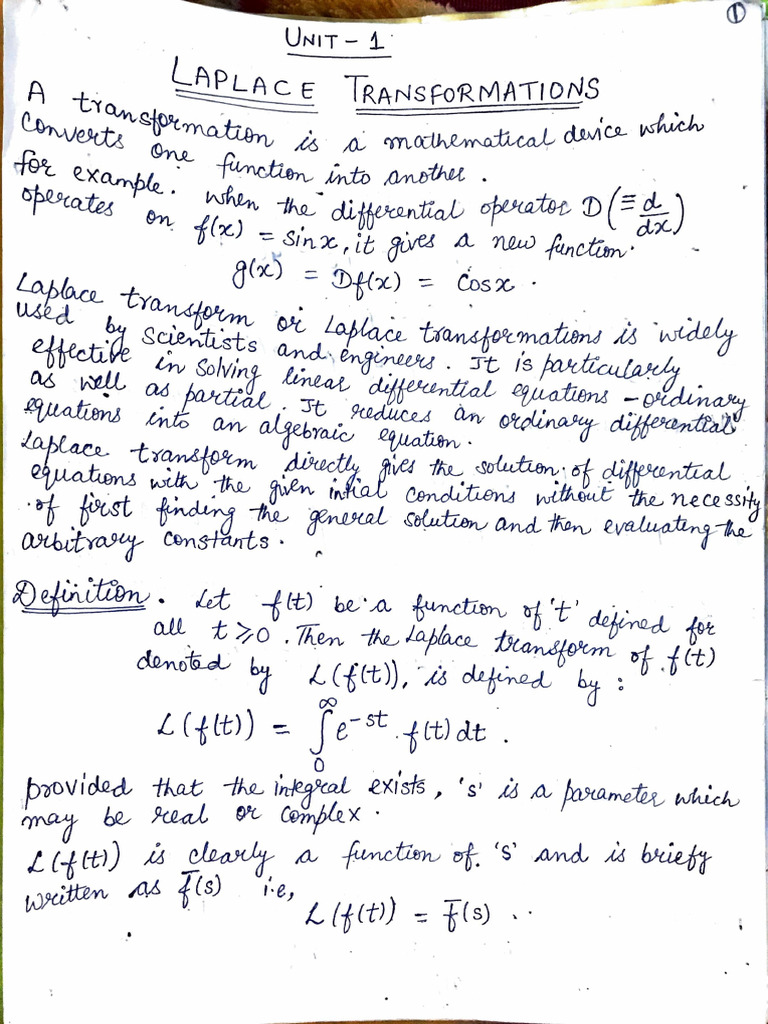 ①
UNIT - 1
LAPLACE TRANSFORMATIONS
A transformation is a mathematical device which
converts one function into another.
for example. when the differential operator D(≡ d/dx)
operates on f(x) = sinx, it gives a new function.
g(x) = Df(x) = cosx.
Laplace transform or Laplace transformations is widely
used by scientists and engineers. It is particularly
effective in solving linear differential equations - ordinary
as well as partial. It reduces an ordinary differential
equations into an algebraic equation.
Laplace transform directly gives the solution of differential
equations with the given intial conditions without the necessity
of first finding the general solution and then evaluating the
arbitrary constants.
Definition. Let f(t) be a function of 't' defined for
all t ≥ 0. Then the Laplace transform of f(t)
denoted by L(f(t)), is defined by:
L(f(t)) = ∫₀^∞ e^-st . f(t) dt.
provided that the integral exists, 's' is a parameter which
may be real or complex.
L(f(t)) is clearly a function of 's' and is briefy
written as f̄(s) i.e,
L(f(t)) = f̄(s) ..